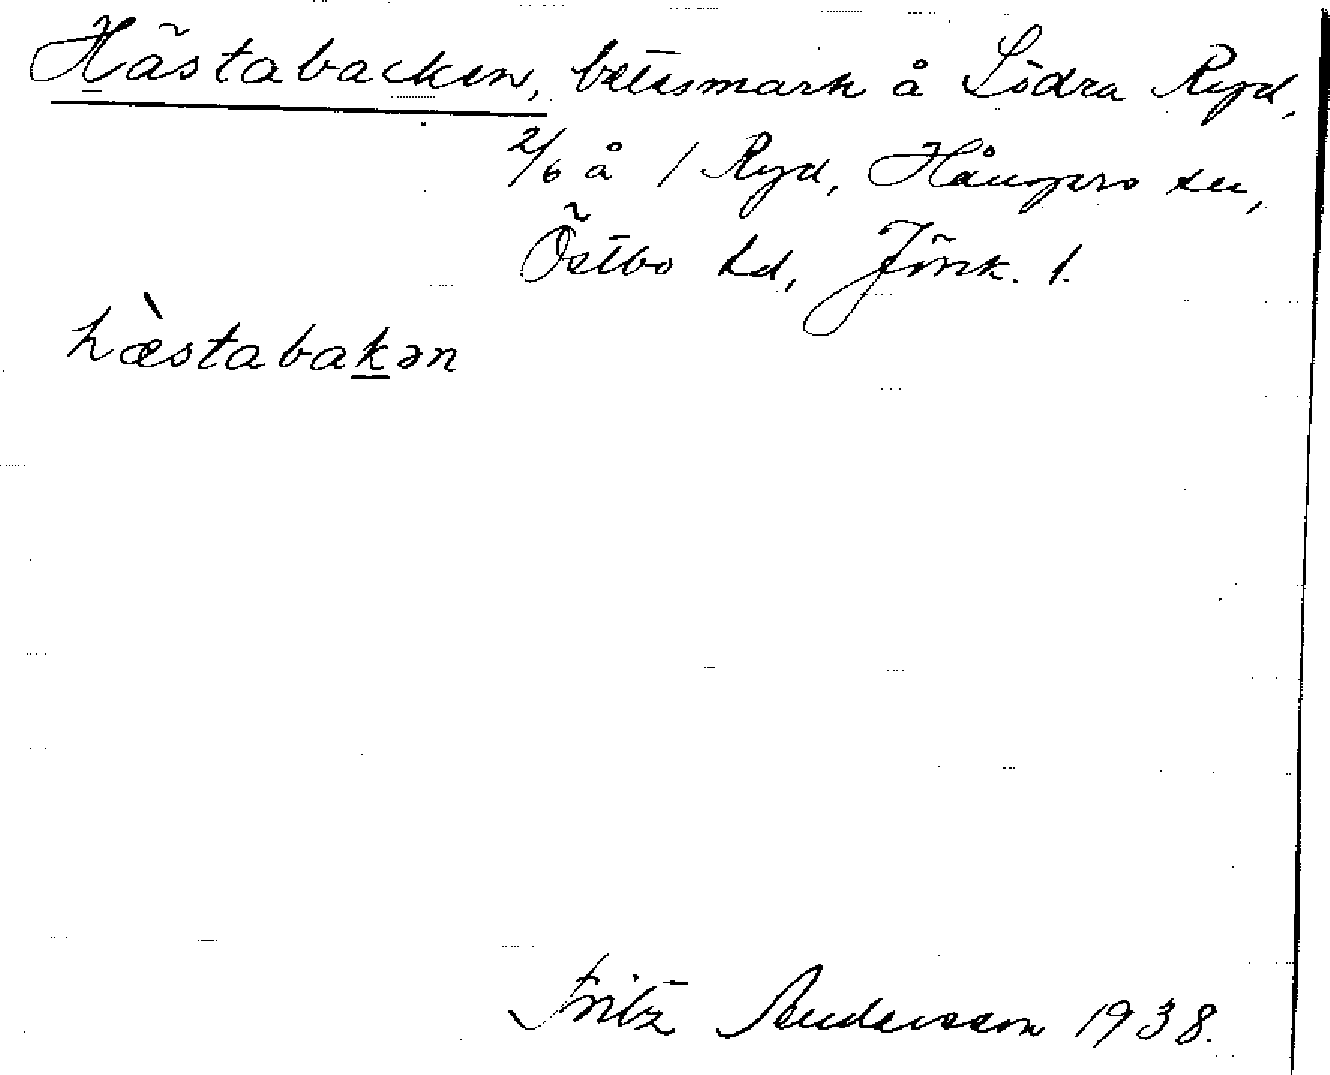 Hästabacken, betesmark å Södra Ryd,
2/6 å 1 Ryd, Hångers sn,
Östbo hd, Jönk. l.
hæ̀stabak̲ən
Fritz Andersson 1938.